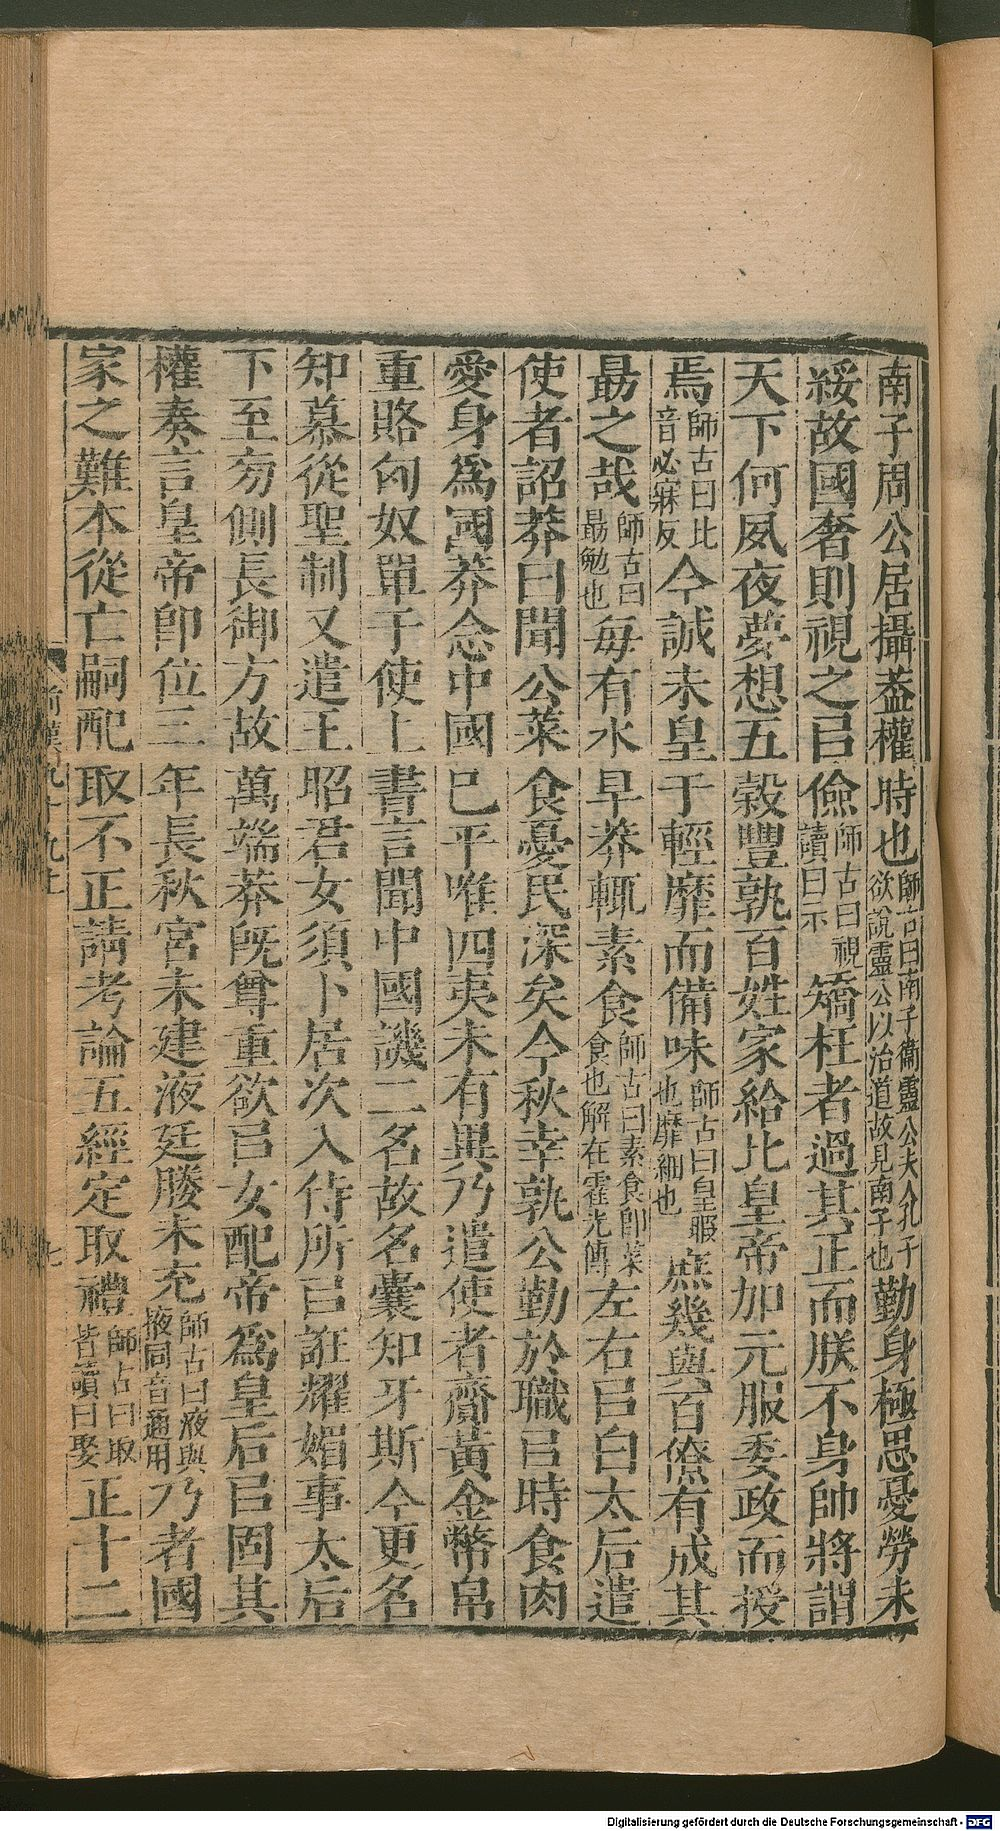 南子周公居攝葢權時也師古曰南子衞靈公夫人孔子欲說靈公以治道故見南子也勤身極思憂勞未
綏故國奢則視之㠯儉師古曰視讀曰示矯枉者過其正而朕不身帥將謂
天下何夙夜夢想五穀豐孰百姓家給比皇帝加元服委政而授
焉師古曰比音必寐反今誠未皇于輕靡而備味師古曰皇暇也靡細也庶幾與百僚有成其
勗之哉師古曰勗勉也每有水旱莽輒素食師古曰素食卽菜食也解在霍光傳左右㠯白太后遣
使者詔莽曰聞公菜食憂民深矣今秋幸孰公勤於職㠯時食肉
愛身爲國莽念中國已平唯四夷未有異乃遣使者齎黃金幣帛
重賂匈奴單于使上書言聞中國譏二名故名囊知牙斯今更名
知慕從聖制又遣王昭君女須卜居次入侍所㠯誑耀媚事太后
下至㫄側長御方故萬端莽旣尊重欲㠯女配帝爲皇后㠯固其
權奏言皇帝卽位三年長秋宮未建液廷媵未充師古曰液與掖同音通用乃者國
家之難本從亡嗣配取不正請考論五經定取禮師古曰取皆讀曰娶正十二
前漢九十九上
七
Digitalisierung gefördert durch die Deutsche Forschungsgemeinschaft - DFG